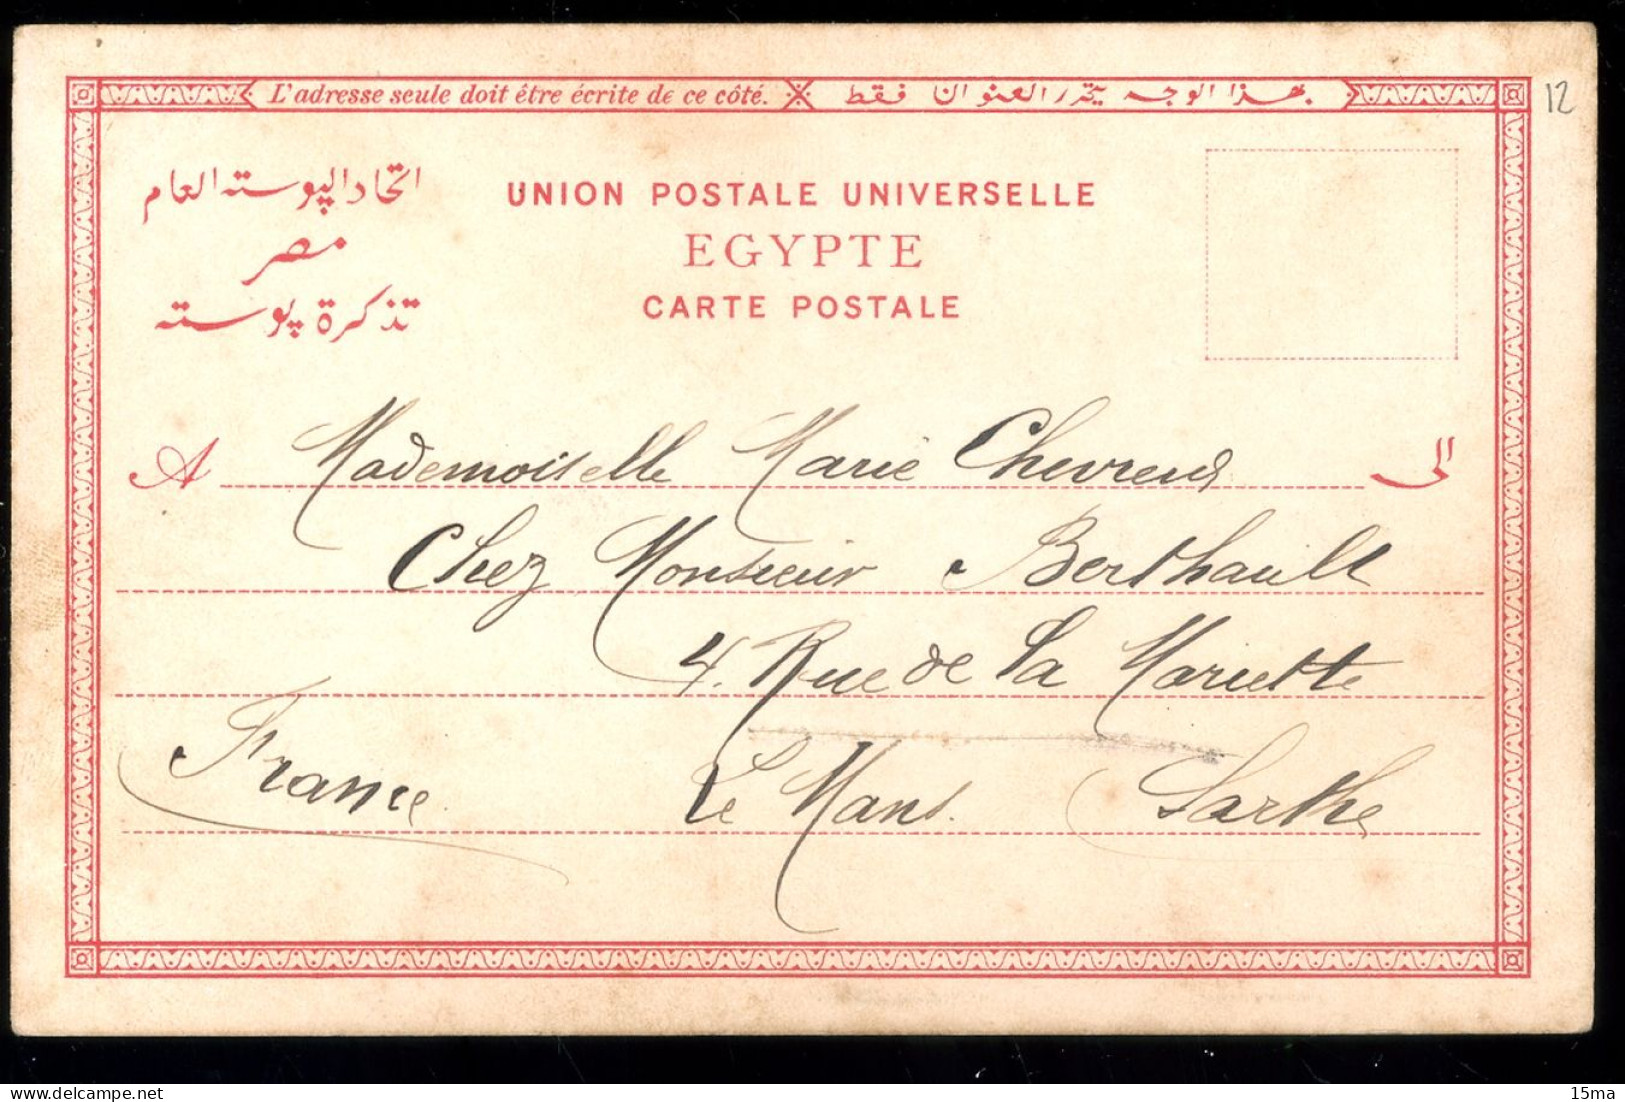 L'adresse seule doit être écrite de ce côté. بهذا الوجه يتحرر العنوان فقط
12
اتحاد البوسته العام
مصر
تذكرة بوسته
UNION POSTALE UNIVERSELLE
EGYPTE
CARTE POSTALE
A Mademoiselle Marie Chevreul الى
Chez Monsieur Berthault
4. Rue de la Mariette
France Le Mans. Sarthe
delcampe.net
15ma